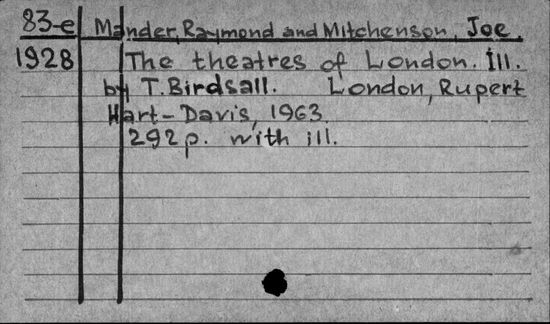 83-e Mander, Raymond and Mitchenson, Joe.
1928 The theatres of London. Ill.
by T. Birdsall. London, Rupert
Hart-Davis, 1963.
292 p. with ill.